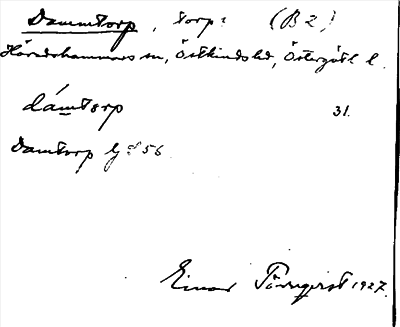 Dammtorp, torp: (B 2)
Häradshammars sn, Östkinds hd, Östergötl. l.
dámtorp 31.
Damtorp GS 56
Einar Törnqvist 1927.